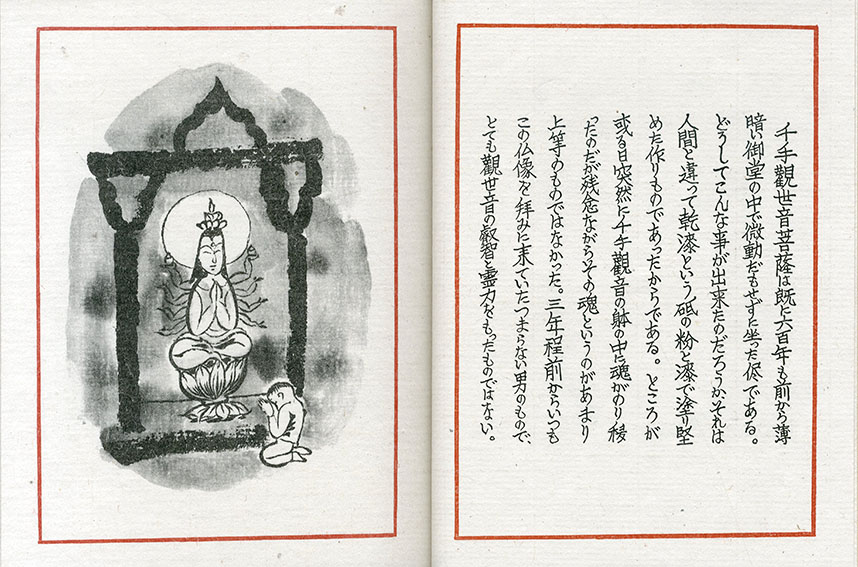 千手觀世音菩薩は既に六百年も前から薄
暗い御堂の中で微動だもせずに坐った侭である。
どうしてこんな事が出来たのだろうか、それは
人間と違って乾漆という砥の粉と漆で塗り堅
めた作りものであったからである。ところが
或る日突然に千手觀音の躰の中に魂がのり移
ったのだが残念ながらその魂というのがあまり
上等のものではなかった。三年程前からいつも
この仏像を拝みに来ていたつまらない男のもので、
とても觀世音の叡智と霊力をもったものではない。